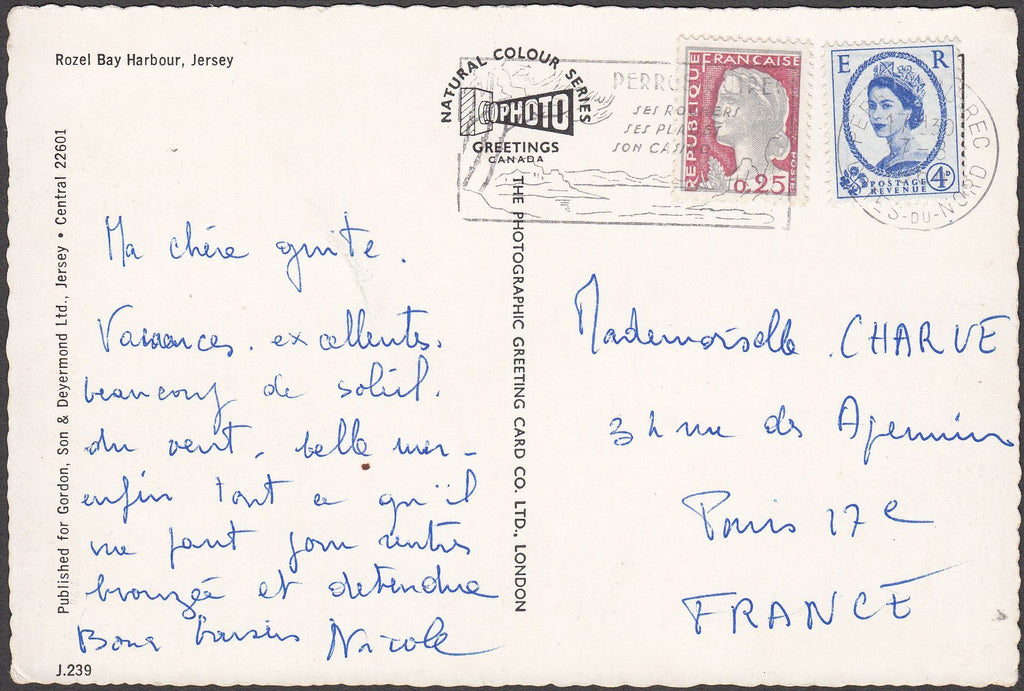 Rozel Bay Harbour, Jersey
NATURAL COLOUR SERIES
PHOTO
GREETINGS
CANADA
PERROS
SES ROCHERS
SES PLAGES
SON CASINO
REPUBLIQUE FRANCAISE
POSTES
0,25
E R
POSTAGE
REVENUE
4D
-DU-NORD
Published for Gordon, Son & Deyermond Ltd., Jersey • Central 22601
THE PHOTOGRAPHIC GREETING CARD CO. LTD., LONDON
Ma chère
Vacances. excellentes.
beaucoup de soleil.
du vent, belle mer -
enfin tout ce qu'il
me faut pour rentrer
bronzée et detendue
Bons baisers Nicole
Mademoiselle CHARVE
rue des Apennins
Paris 17e
FRANCE
J.239